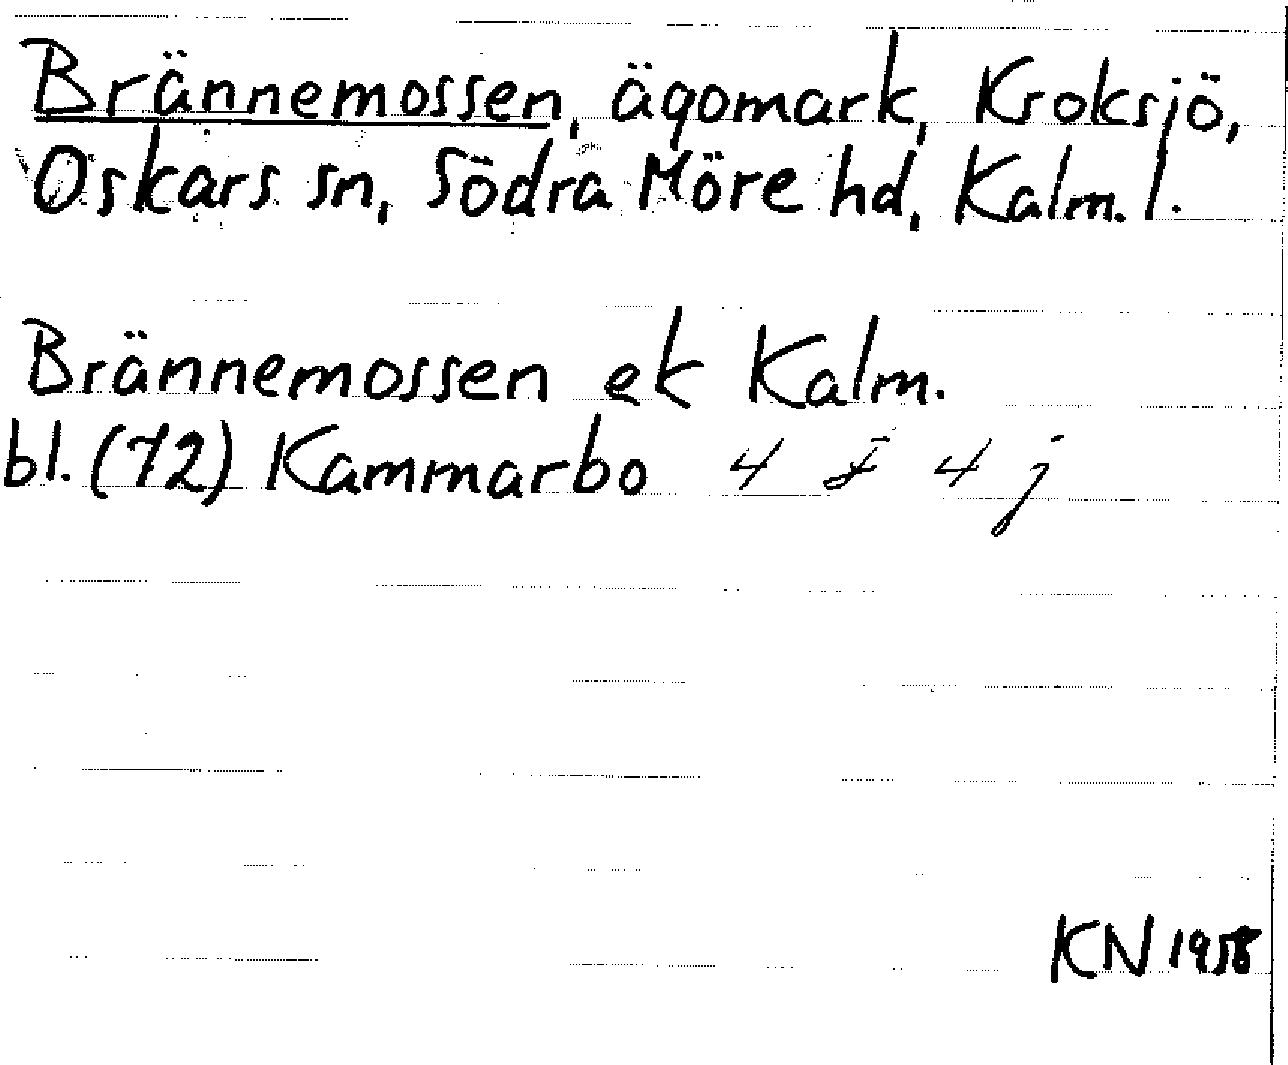 Brännemossen, ägomark, Kroksjö,
Oskars sn, Södra Möre hd, Kalm. l.
Brännemossen ek Kalm.
bl. (72) Kammarbo 4 f 4 j
KN 1958